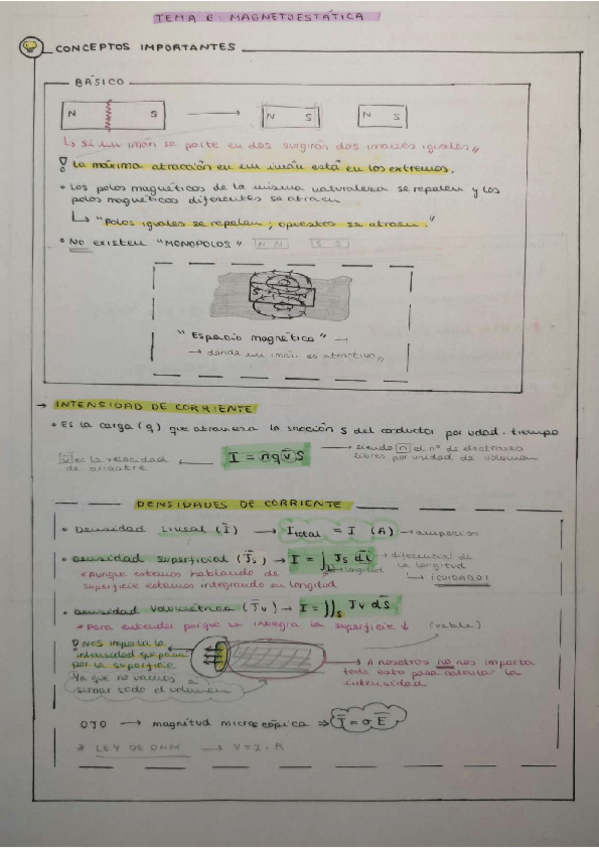 TEMA 6: MAGNETOESTÁTICA
CONCEPTOS IMPORTANTES
BÁSICO
N S N S N S
↳ si un imán se parte en dos surgirán dos imanes iguales,,
! La máxima atracción en un imán está en los extremos.
• Los polos magnéticos de la misma naturaleza se repelen y los
polos magnéticos diferentes se atraen
↳ "Polos iguales se repelen; opuestos se atraen."
• NO existen "MONOPOLOS" N N S S
"Espacio magnético" →
→ donde un imán es atractivo,,
→ INTENSIDAD DE CORRIENTE
• Es la carga (q) que atraviesa la sección S del conductor por udad. tiempo
v̄ es la velocidad
de arrastre
← I = n q v̄ S →
siendo n el nº de electrones
libres por unidad de volumen
DENSIDADES DE CORRIENTE
• Densidad Lineal (Ī) → Itotal = I (A) → amperios
• Densidad superficial (J̄s) → I = ∫L J̄s dl̄ → diferencial de
la longitud
longitud
↳ ¡CUIDADO!
* Aunque estemos hablando de
superficie estamos integrando en longitud
• Densidad Volumétrica (J̄v) → I = ∬s J̄v ds̄
* Para entender porque se integra la superficie ↓ (cable)
! NOS importa la
intensidad que pasa
por la superficie
Ya que no vamos a
sumar todo el volumen
→ A nosotros no nos importa
todo esto para calcular la
intensidad
OJO → magnitud microscópica ⇒ J̄ = σ Ē
* LEY DE OHM → V = I · R